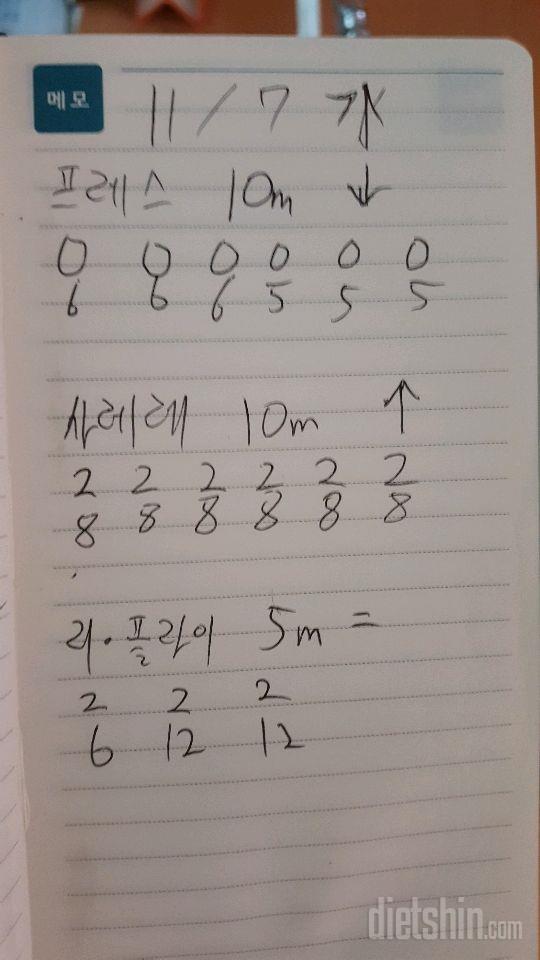 메모
11/7 水
프레스 10m ↓
0 0 0 0 0 0
6 6 6 5 5 5
사레레 10m ↑
2 2 2 2 2 2
8 8 8 8 8 8
리·플라이 5m =
2 2 2
6 12 12
dietshin.com